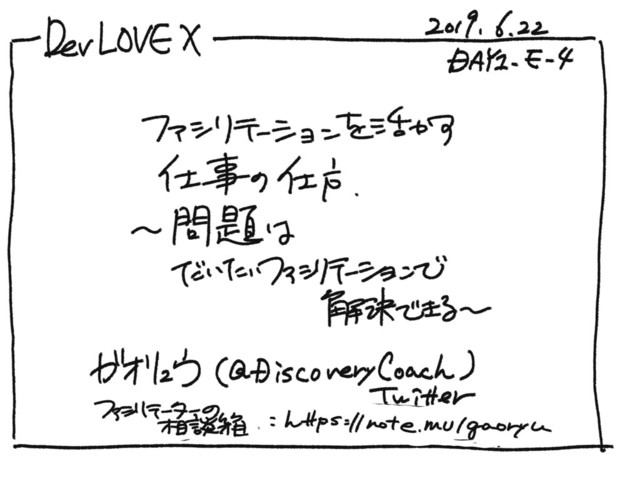 DevLOVE X
2019.6.22
DAY1-E-4
ファシリテーションを活かす
仕事の仕方.
～問題は
だいたいファシリテーションで
解決できる～
ガオリュウ (@DiscoveryCoach)
Twitter
ファシリテーターの
相談箱 : https://note.mu/gaoryu